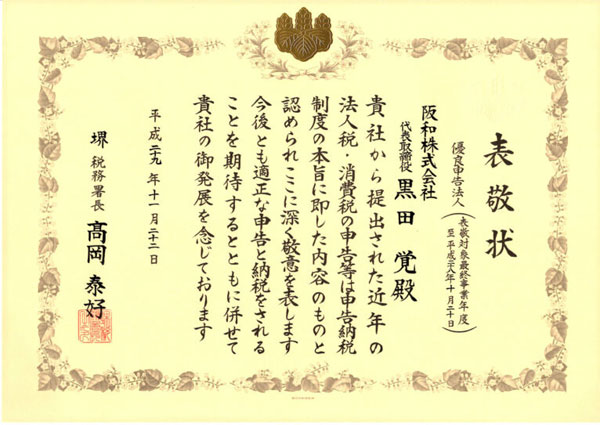 表敬状
優良申告法人
(表敬対象最終事業年度
至平成二八年十月二十日)
阪和株式会社
代表取締役 黒田覚殿
貴社から提出された近年の
法人税・消費税の申告等は申告納税
制度の本旨に即した内容のものと
認められここに深く敬意を表します
今後とも適正な申告と納税をされる
ことを期待するとともに併せて
貴社の御発展を念じております
平成二九年十一月二十二日
堺税務署長 髙岡泰好